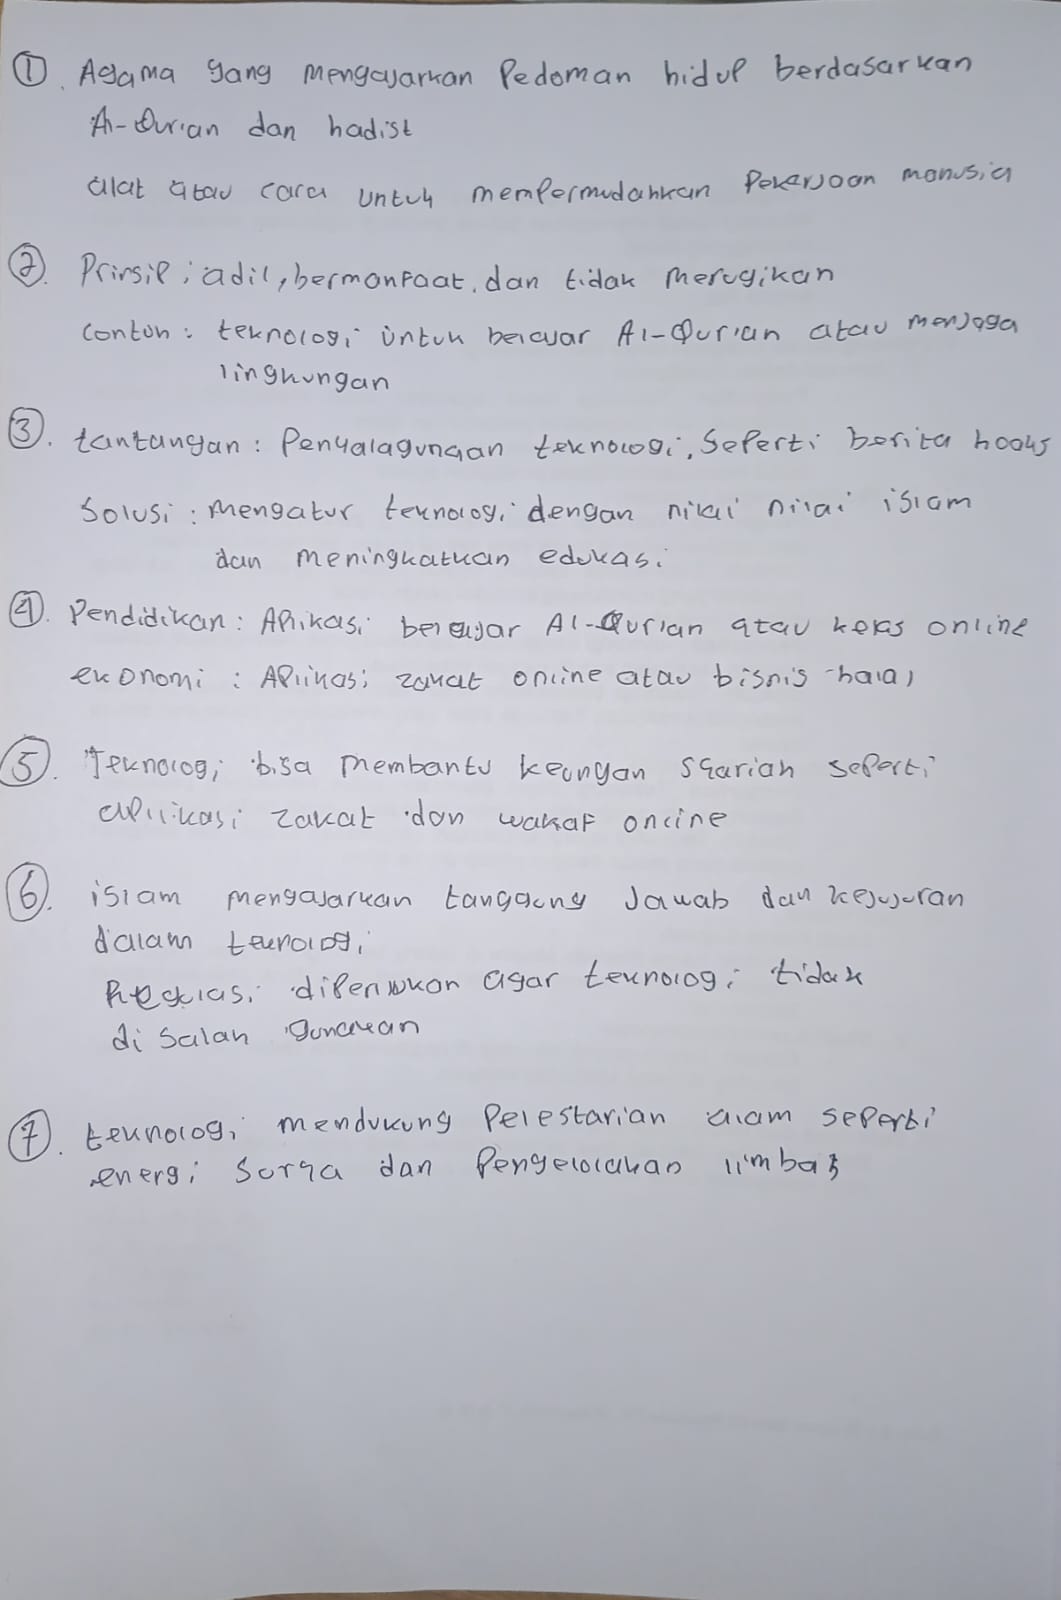 ① Agama yang mengajarkan Pedoman hidup berdasarkan
Al-Qur'an dan hadist
alat atau cara untuk mempermudahkan Pekerjaan manusia
②. Prinsip ; adil, bermanfaat, dan tidak merugikan
Contoh : teknologi untuk belajar Al-Qur'an atau menjaga
lingkungan
③. tantangan : Penyalagunaan teknologi, Seperti berita hooks
Solusi : mengatur teknologi dengan nilai nilai islam
dan meningkatkan edukasi
④. Pendidikan : Aplikasi belajar Al-Qur'an atau kelas online
ekonomi : Aplikasi zakat online atau bisnis halal
⑤. Teknologi bisa membantu keungan syariah seperti
aplikasi zakat dan wakaf online
⑥. islam mengajarkan tanggung Jawab dan kejujuran
dalam teknologi
Regulasi diperlukan agar teknologi tidak
di salah gunakan
⑦. teknologi mendukung Pelestarian alam seperti
energi Surya dan Pengelolahan limbah